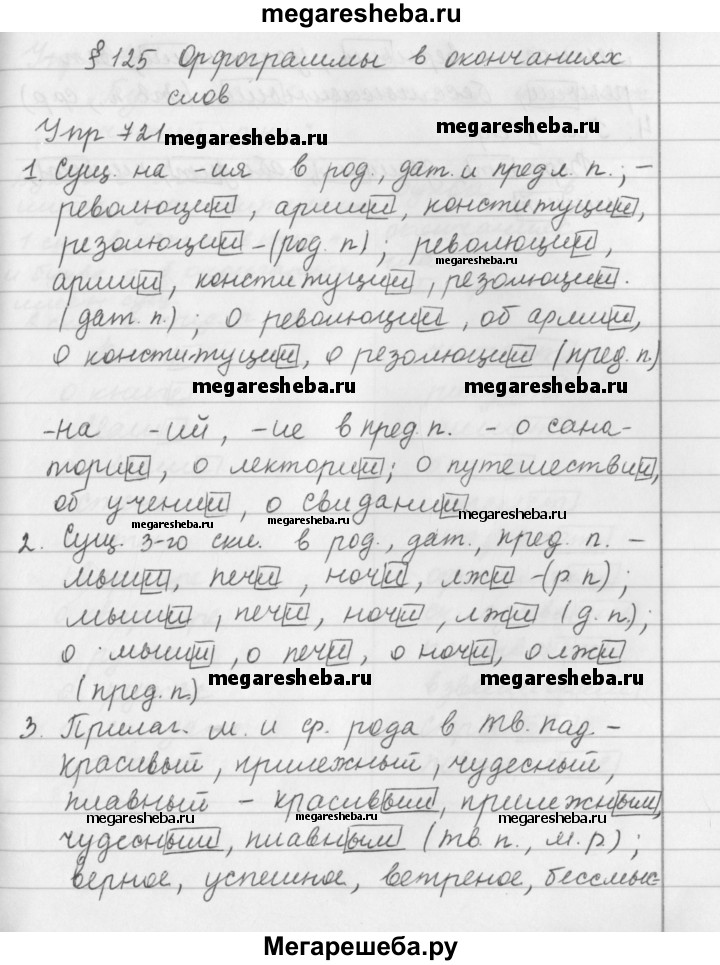 megaresheba.ru
§ 125 Орфограммы в окончаниях
слов
Упр 721
megaresheba.ru
1. Сущ. на -ия в род., дат. и предл. п.; –
революции, армии, конституции,
резолюции – (род. п.); революции,
megaresheba.ru
армии, конституции, резолюции.
(дат. п.); о революции, об армии,
о конституции, о резолюции (пред. п.)
megaresheba.ru megaresheba.ru
-на -ий, -ие в пред. п. – о сана-
тории, о лектории; о путешествии,
об учении, о свидании
megaresheba.ru megaresheba.ru megaresheba.ru
2. Сущ. 3-го скл. в род., дат., пред. п. –
мыши, печи, ночи, лжи – (р. п);
мыши, печи, ночи, лжи (д. п.);
о мыши, о печи, о ночи, о лжи
(пред. п.)
megaresheba.ru megaresheba.ru
3. Прилаг. м. и ср. рода в тв. пад. –
красивый, прилежный, чудесный,
плавный – красивым, прилежным,
megaresheba.ru megaresheba.ru
чудесным, плавным (тв. п., м. р);
верное, успешное, ветреное, бессмыс-
Мегарешеба.ру